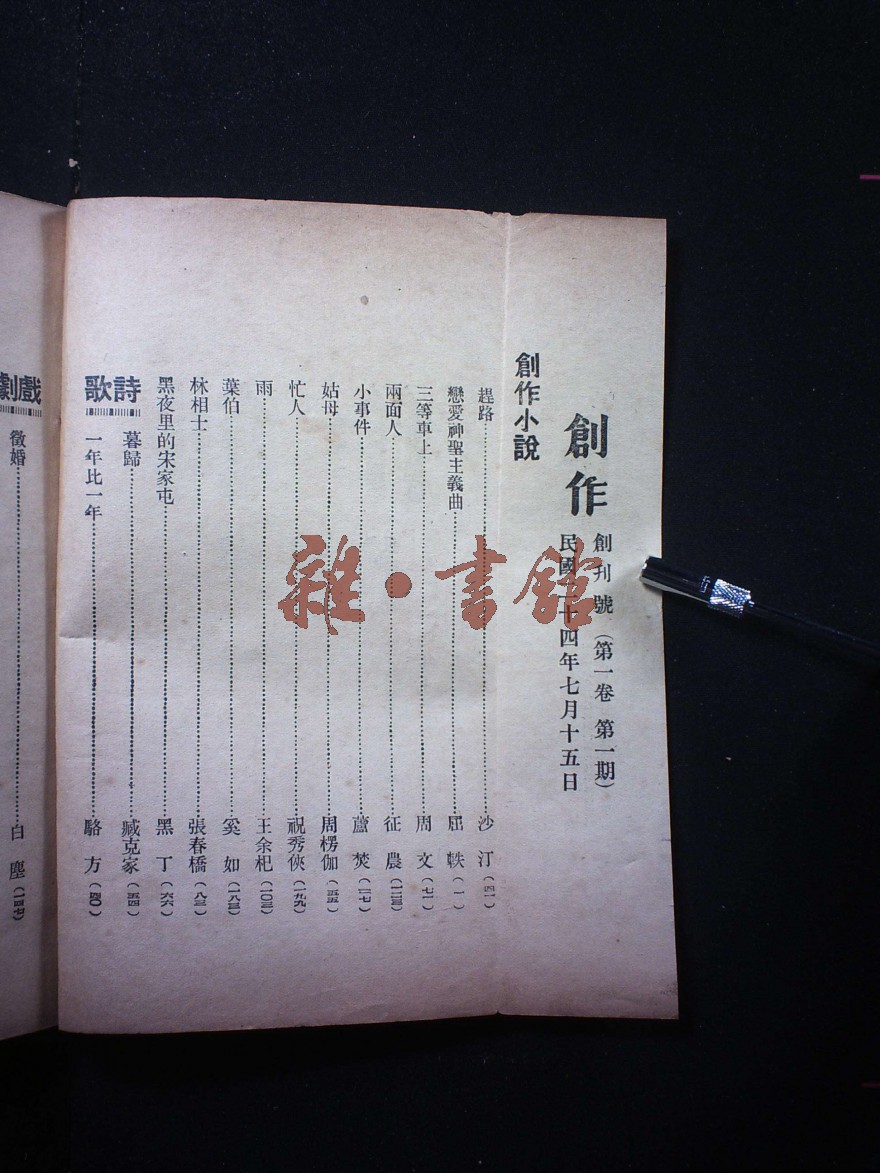 創作
創刊號（第一卷 第一期）
民國二十四年七月十五日
創作小說
趕路……沙汀（四一）
戀愛神聖主義曲……屈軼（一）
三等車上……周文（七一）
兩面人……征農（一二三）
小事件……蘆焚（一三七）
姑母……周楞伽（一五五）
忙人……祝秀俠（一九九）
雨……王余杞（一〇三）
葉伯……奚如（一八三）
林相士……張春橋（八三）
黑夜里的宋家屯……黑丁（六六）
詩歌
暮歸……臧克家（五四）
一年比一年……駱方（四〇）
戲劇
徵婚……白塵（一四七）
雜·書館